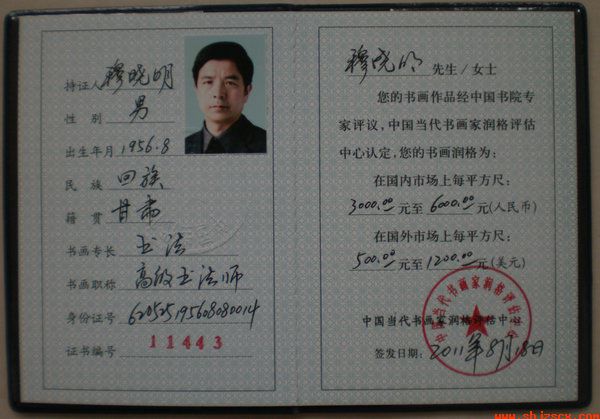 持证人 穆晓明
性别 男
出生年月 1956.8
民族 回族
籍贯 甘肃
书画专长 书法
书画职称 高级书法师
身份证号 620525195608080014
证书编号 11443
穆晓明 先生/女士
您的书画作品经中国书院专
家评议,中国当代书画家润格评估
中心认定,您的书画润格为:
在国内市场上每平方尺:
3000.00元至6000.00元(人民币)
在国外市场上每平方尺:
500.00元至1200.00元(美元)
中国当代书画家润格评估中心
中国当代书画家润格评估中心
签发日期:2011年8月18日
www.shjzscx.com